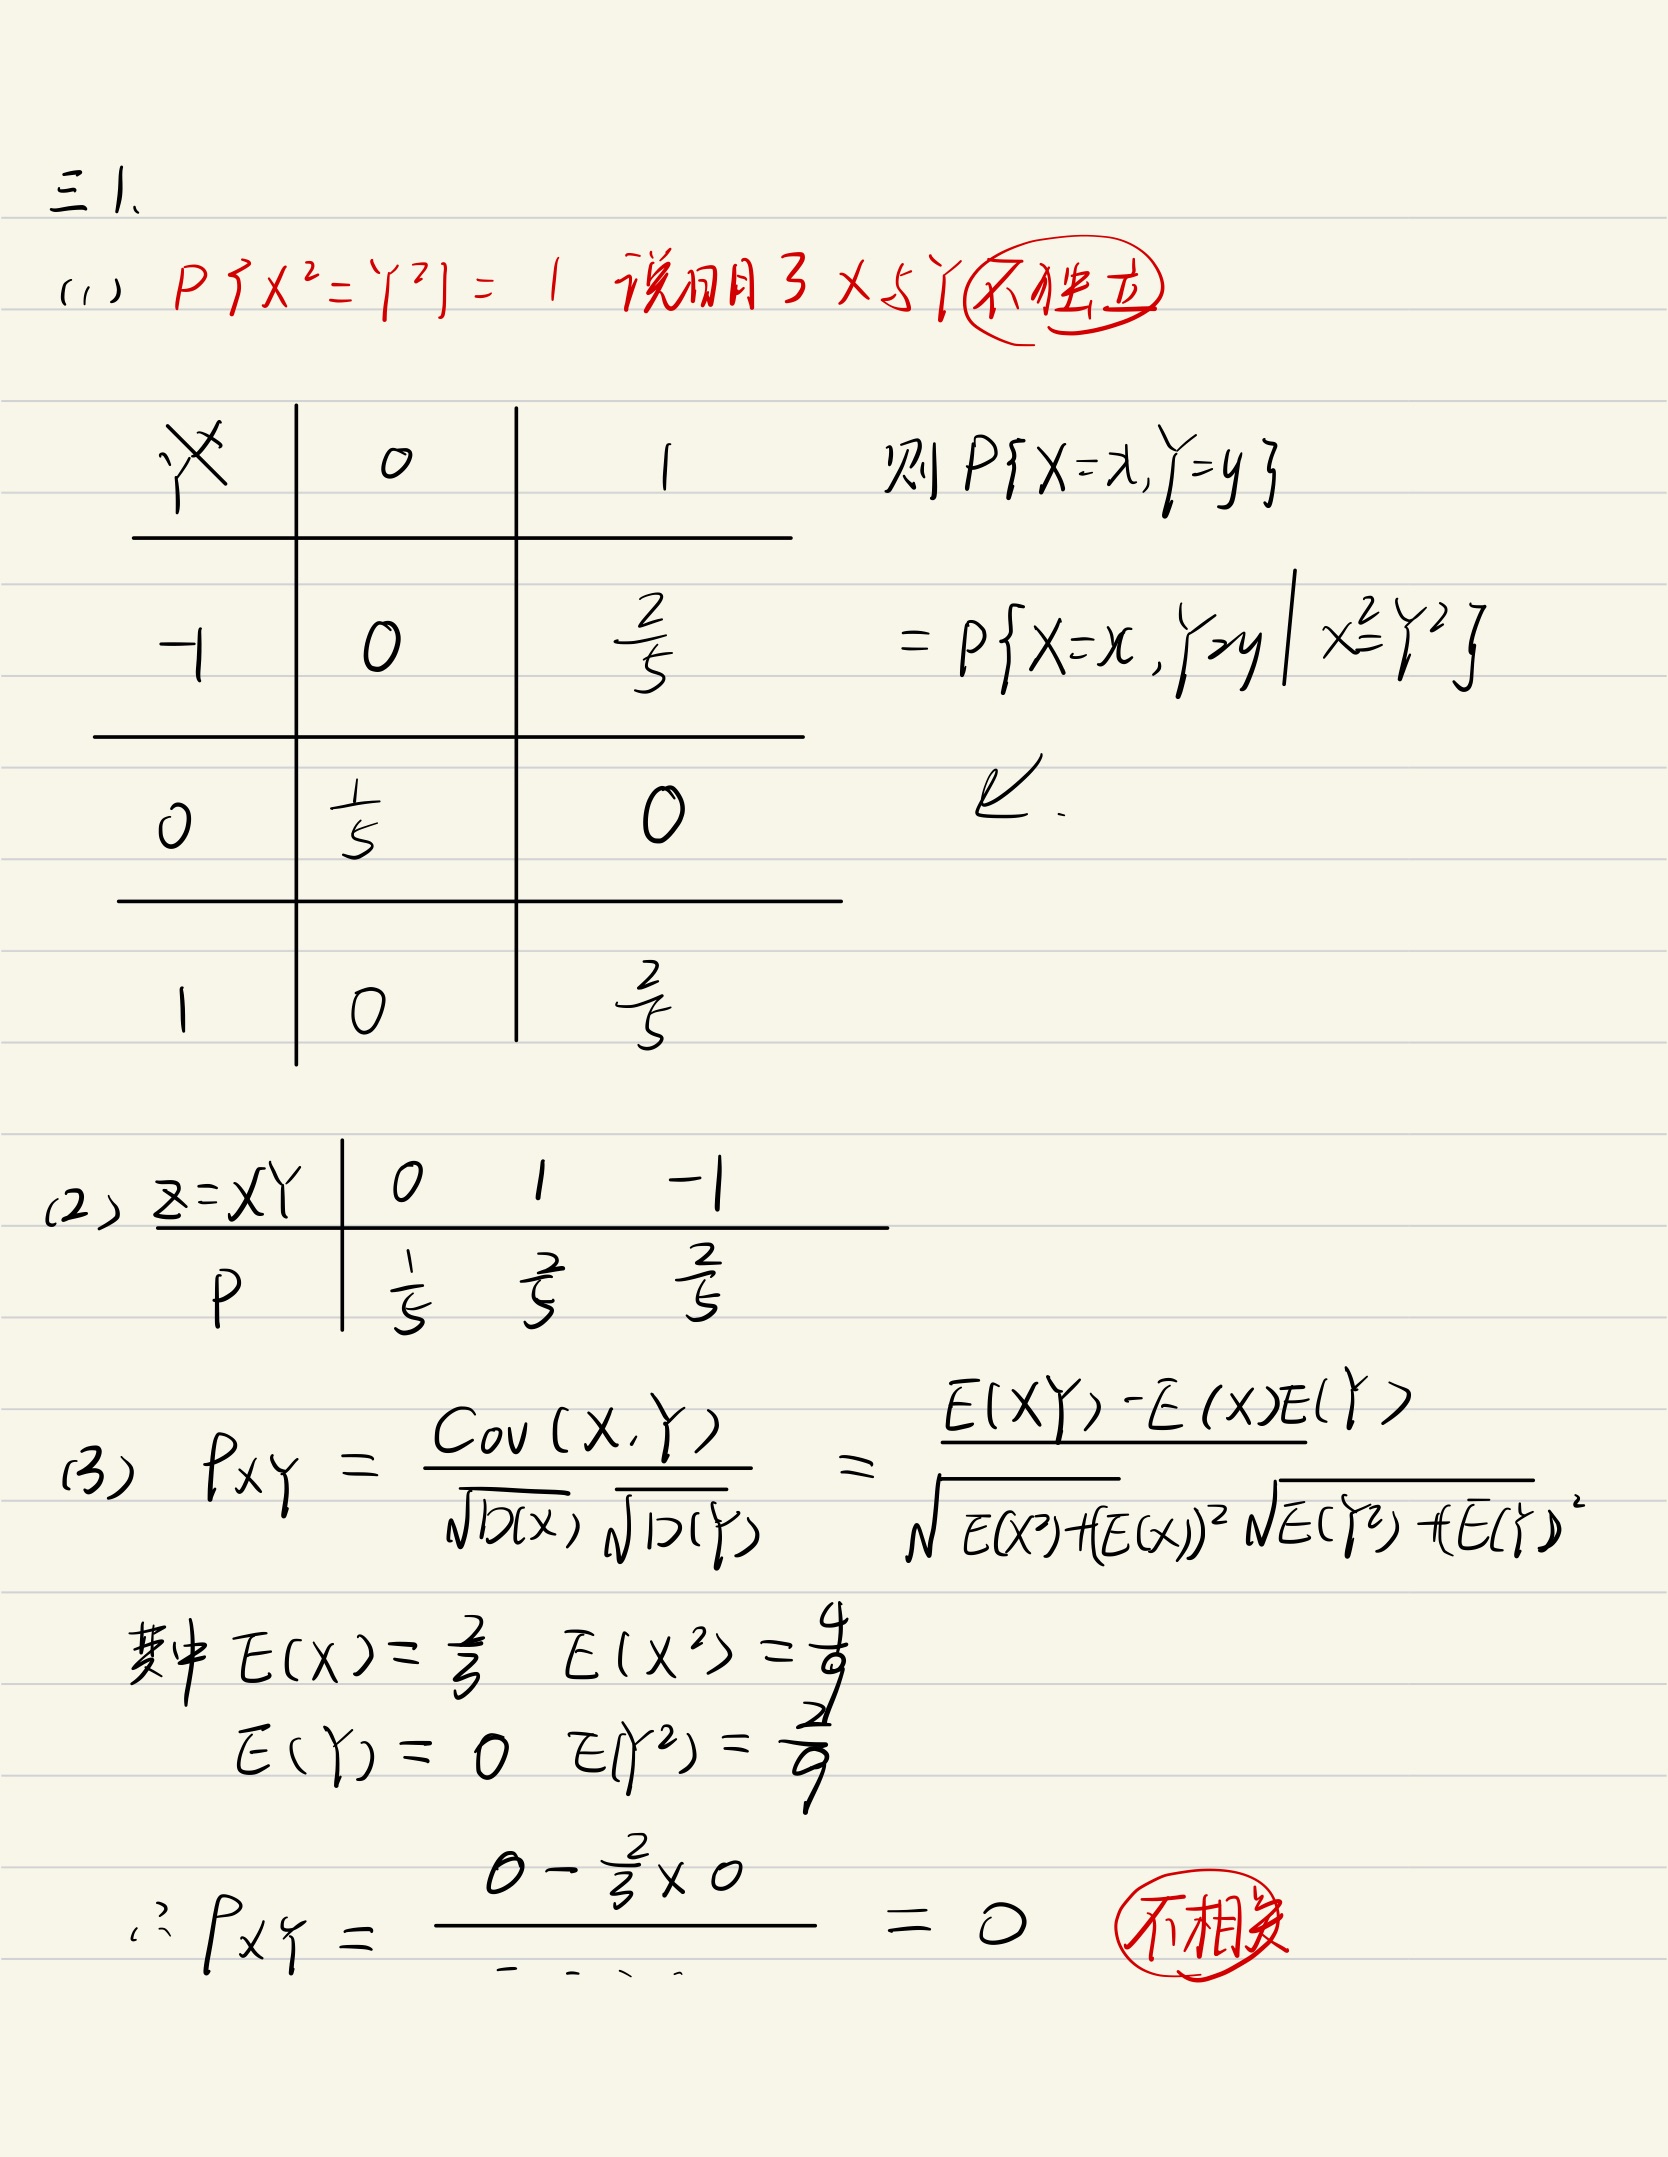 三 1、
(1) P{X²=Y²}=1 说明了X与Y不独立
Y X 0 1 则 P{X=x,Y=y}
-1 0 2/5 = P{X=x,Y=y | X²=Y²}
0 1/5 0
1 0 2/5
(2) Z=XY 0 1 -1
P 1/5 2/5 2/5
(3) ρXY = Cov(X,Y) / √D(X) √D(Y) = E(XY)-E(X)E(Y) / √E(X²)+(E(X))² √E(Y²)+(E(Y))²
其中 E(X)=2/3 E(X²)=4/9
E(Y)=0 E(Y²)=2/9
∴ρXY = 0-2/3×0 / ---- = 0 不相关